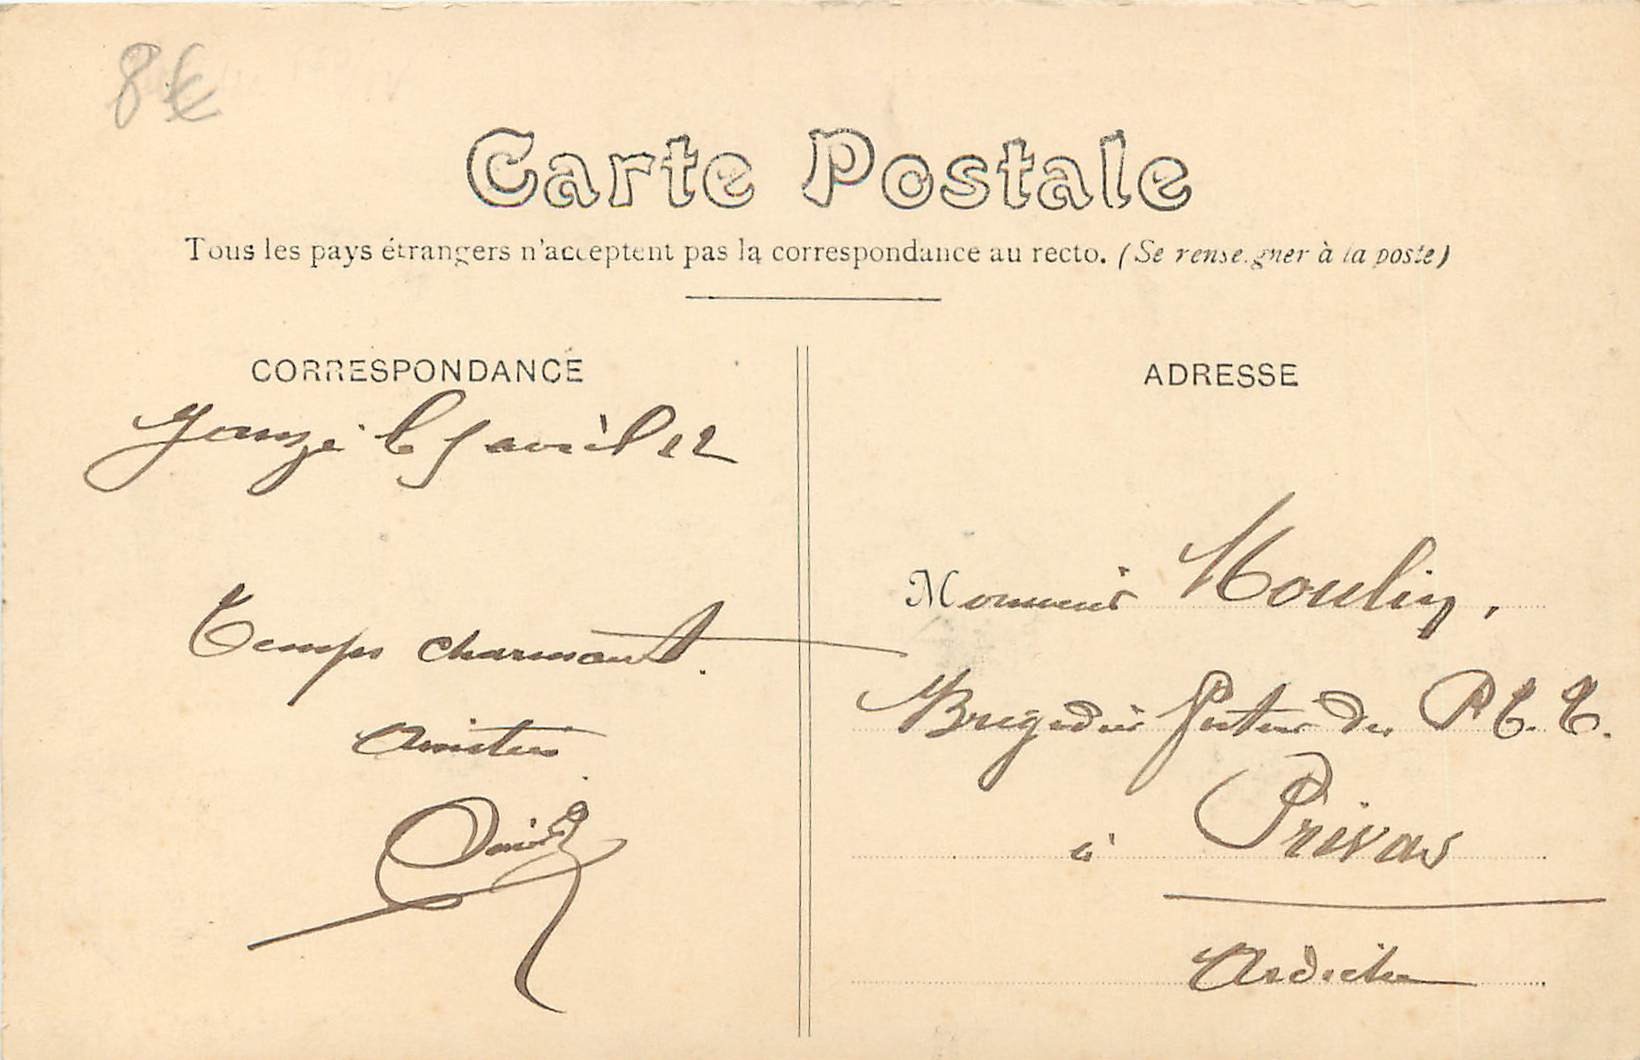 8€
Carte Postale
Tous les pays étrangers n'acceptent pas la correspondance au recto. (Se renseigner à la poste)
CORRESPONDANCE
le 5 avril 12
Temps charmant.
Amitiés
ADRESSE
Monsieur Moulin,
Brigadier facteur des P.T.T.
à Privas
Ardèche